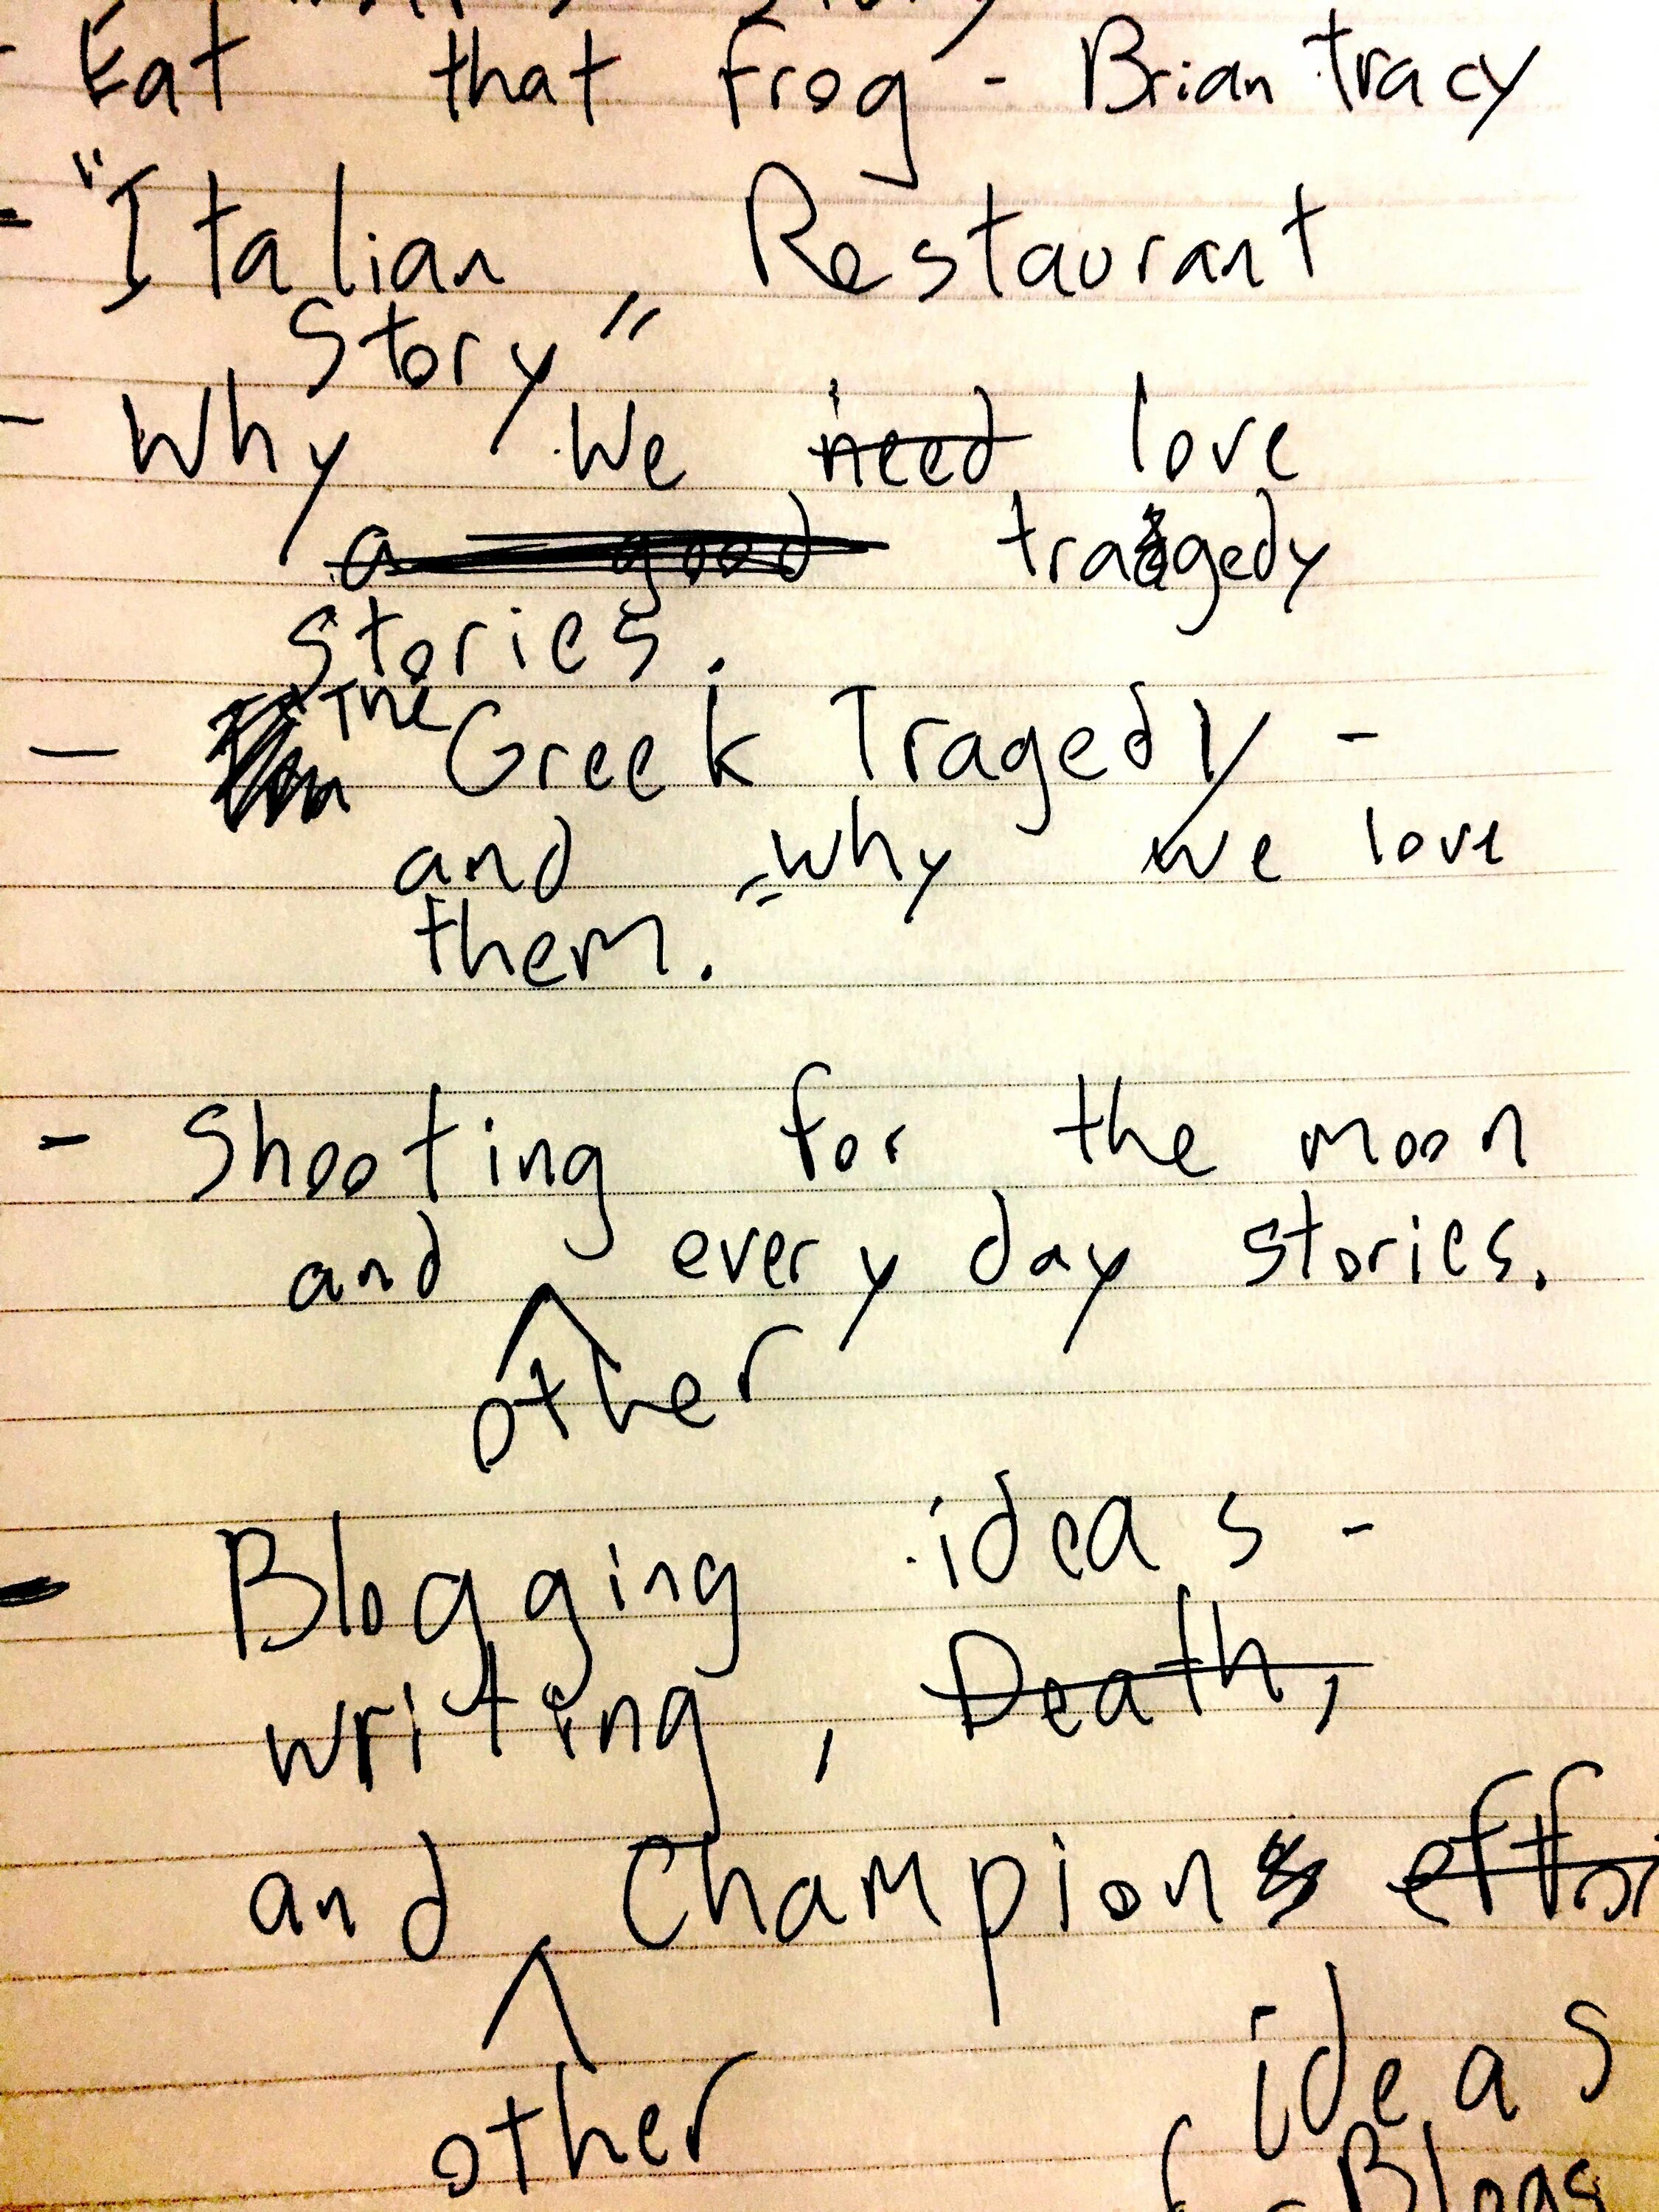 - Eat that frog - Brian tracy
- "Italian Restaurant
Story"
- Why We need love
a good tragedy
stories.
- The Greek Tragedy -
and "why we love
them.
- Shooting for the moon
and every day stories.
other
- Blogging ideas -
writing, Death,
and Champion
other
ideas
Blogs